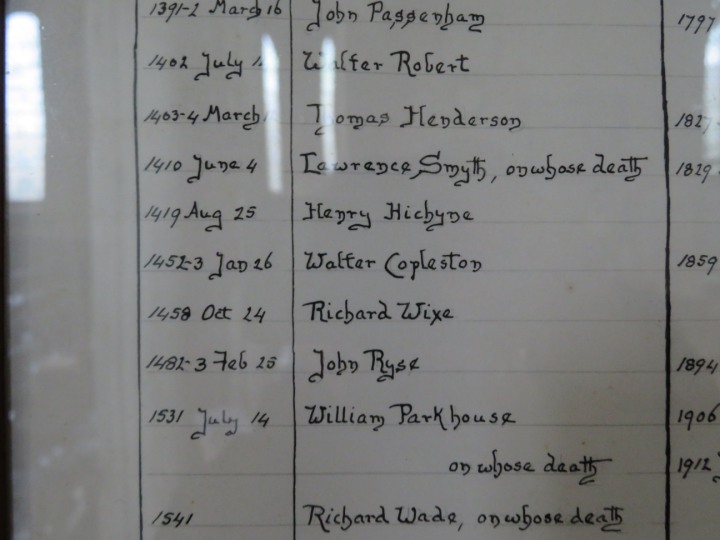 1391-2 March 16 John Passenham 1797
1402 July Walter Robert
1403-4 March Thomas Henderson 1827
1410 June 4 Lawrence Smyth, on whose death 1829
1419 Aug 25 Henry Hichyne
1452-3 Jan 26 Walter Copleston 1859
1458 Oct 24 Richard Wixe
1482-3 Feb 25 John Ryse 1894
1531 July 14 William Parkhouse 1906
on whose death 1912
1541 Richard Wade, on whose death